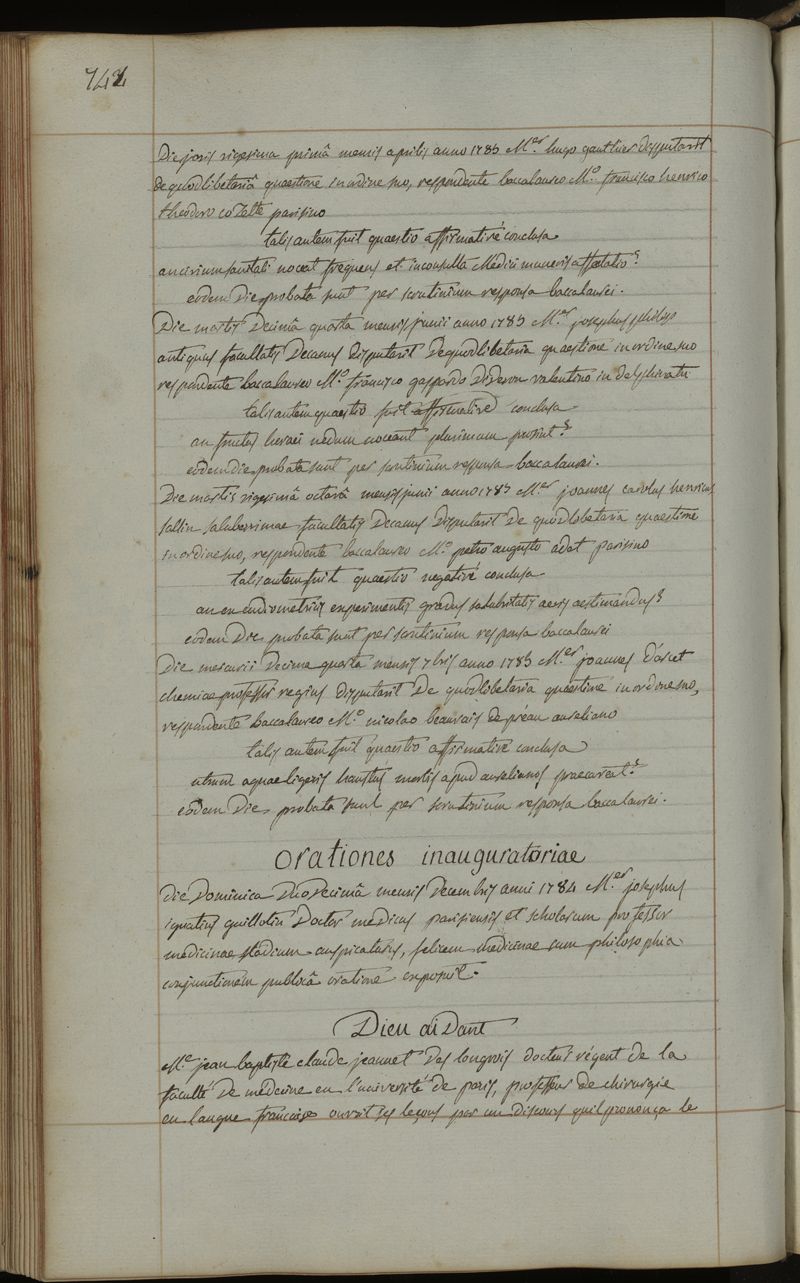 742
Die jovis vigesima primâ mensis aprilis anno 1785 M.er hugo gauthier disputavit
de quodlibetariâ quaestione in ordine suo, respondente baccalaureo M.o francisco henrico
theodoro cozette parisino
talis autem fuit quaestio affirmativé conclusa
an civium sanitati noceat frequens et inconsulta Medici muneris affectatio?
eôdem Die probata sunt per scrutinium responsa baccalaurei.
Die martis Decimâ quarta mensis junii anno 1785 M.er josephus philip
antiquus facultatis Decanus disputavit de quodlibetaria quaestione in ordine suo
respondente baccalaureo M.o francisco gaspardo Dideron valentino in delphinatu
talis autem quaestio fuit affirmativé conclusa
an fructus horaei nedum noceant plurimum prosint?
eodem die probata sunt per scrutinium responsa baccalaurei.
Die martis vigesimâ octavâ mensis junii anno 1785 M.er joannes carolus henricus
sallin saluberrimae facultatis Decanus Disputavit De quodlibetaria quaestione
in ordine suo, respondente baccalaureo M.o petro augusto adet parisino
talis autem fuit quaestio negativé conclusa
an ex eudiometriis experimentis gradus salubritatis aeris aestimandus?
eodem Die probata sunt per scrutinium responsa baccalaurei
Die mercurii Decima quarta mensis 7bris anno 1785 M.er joannes D'arcet
chemiae professor regius disputavit De quodlibetaria quaestione in ordine suo,
respondente baccalaureo M.o nicolao beauvais de préau aureliano
talis autem fuit quaestio affirmativé conclusa
utrum aquae ligeris haustus morbis apud aurelianos praecaveat?
eodem Die probata sunt per scrutinium responsa baccalaurei.
Orationes inauguratoriae
Die Dominica Duodecimâ mensis Decembris anni 1784 M.er josephus
ignatius guillotin Doctor medicus parisiensis et scholarum professor
medicinae stadium auspicaturus, felicem medicinae cum philosophia
conjunctionem publicâ oratione exposuit.
Dieu aidant
M.e jean baptiste claude jeannet Des longrois docteur régent de la
faculté De médecine en l'université de paris, professeur de chirurgie
en langue francaise ouvrit ses leçons par un discours quil prononça le